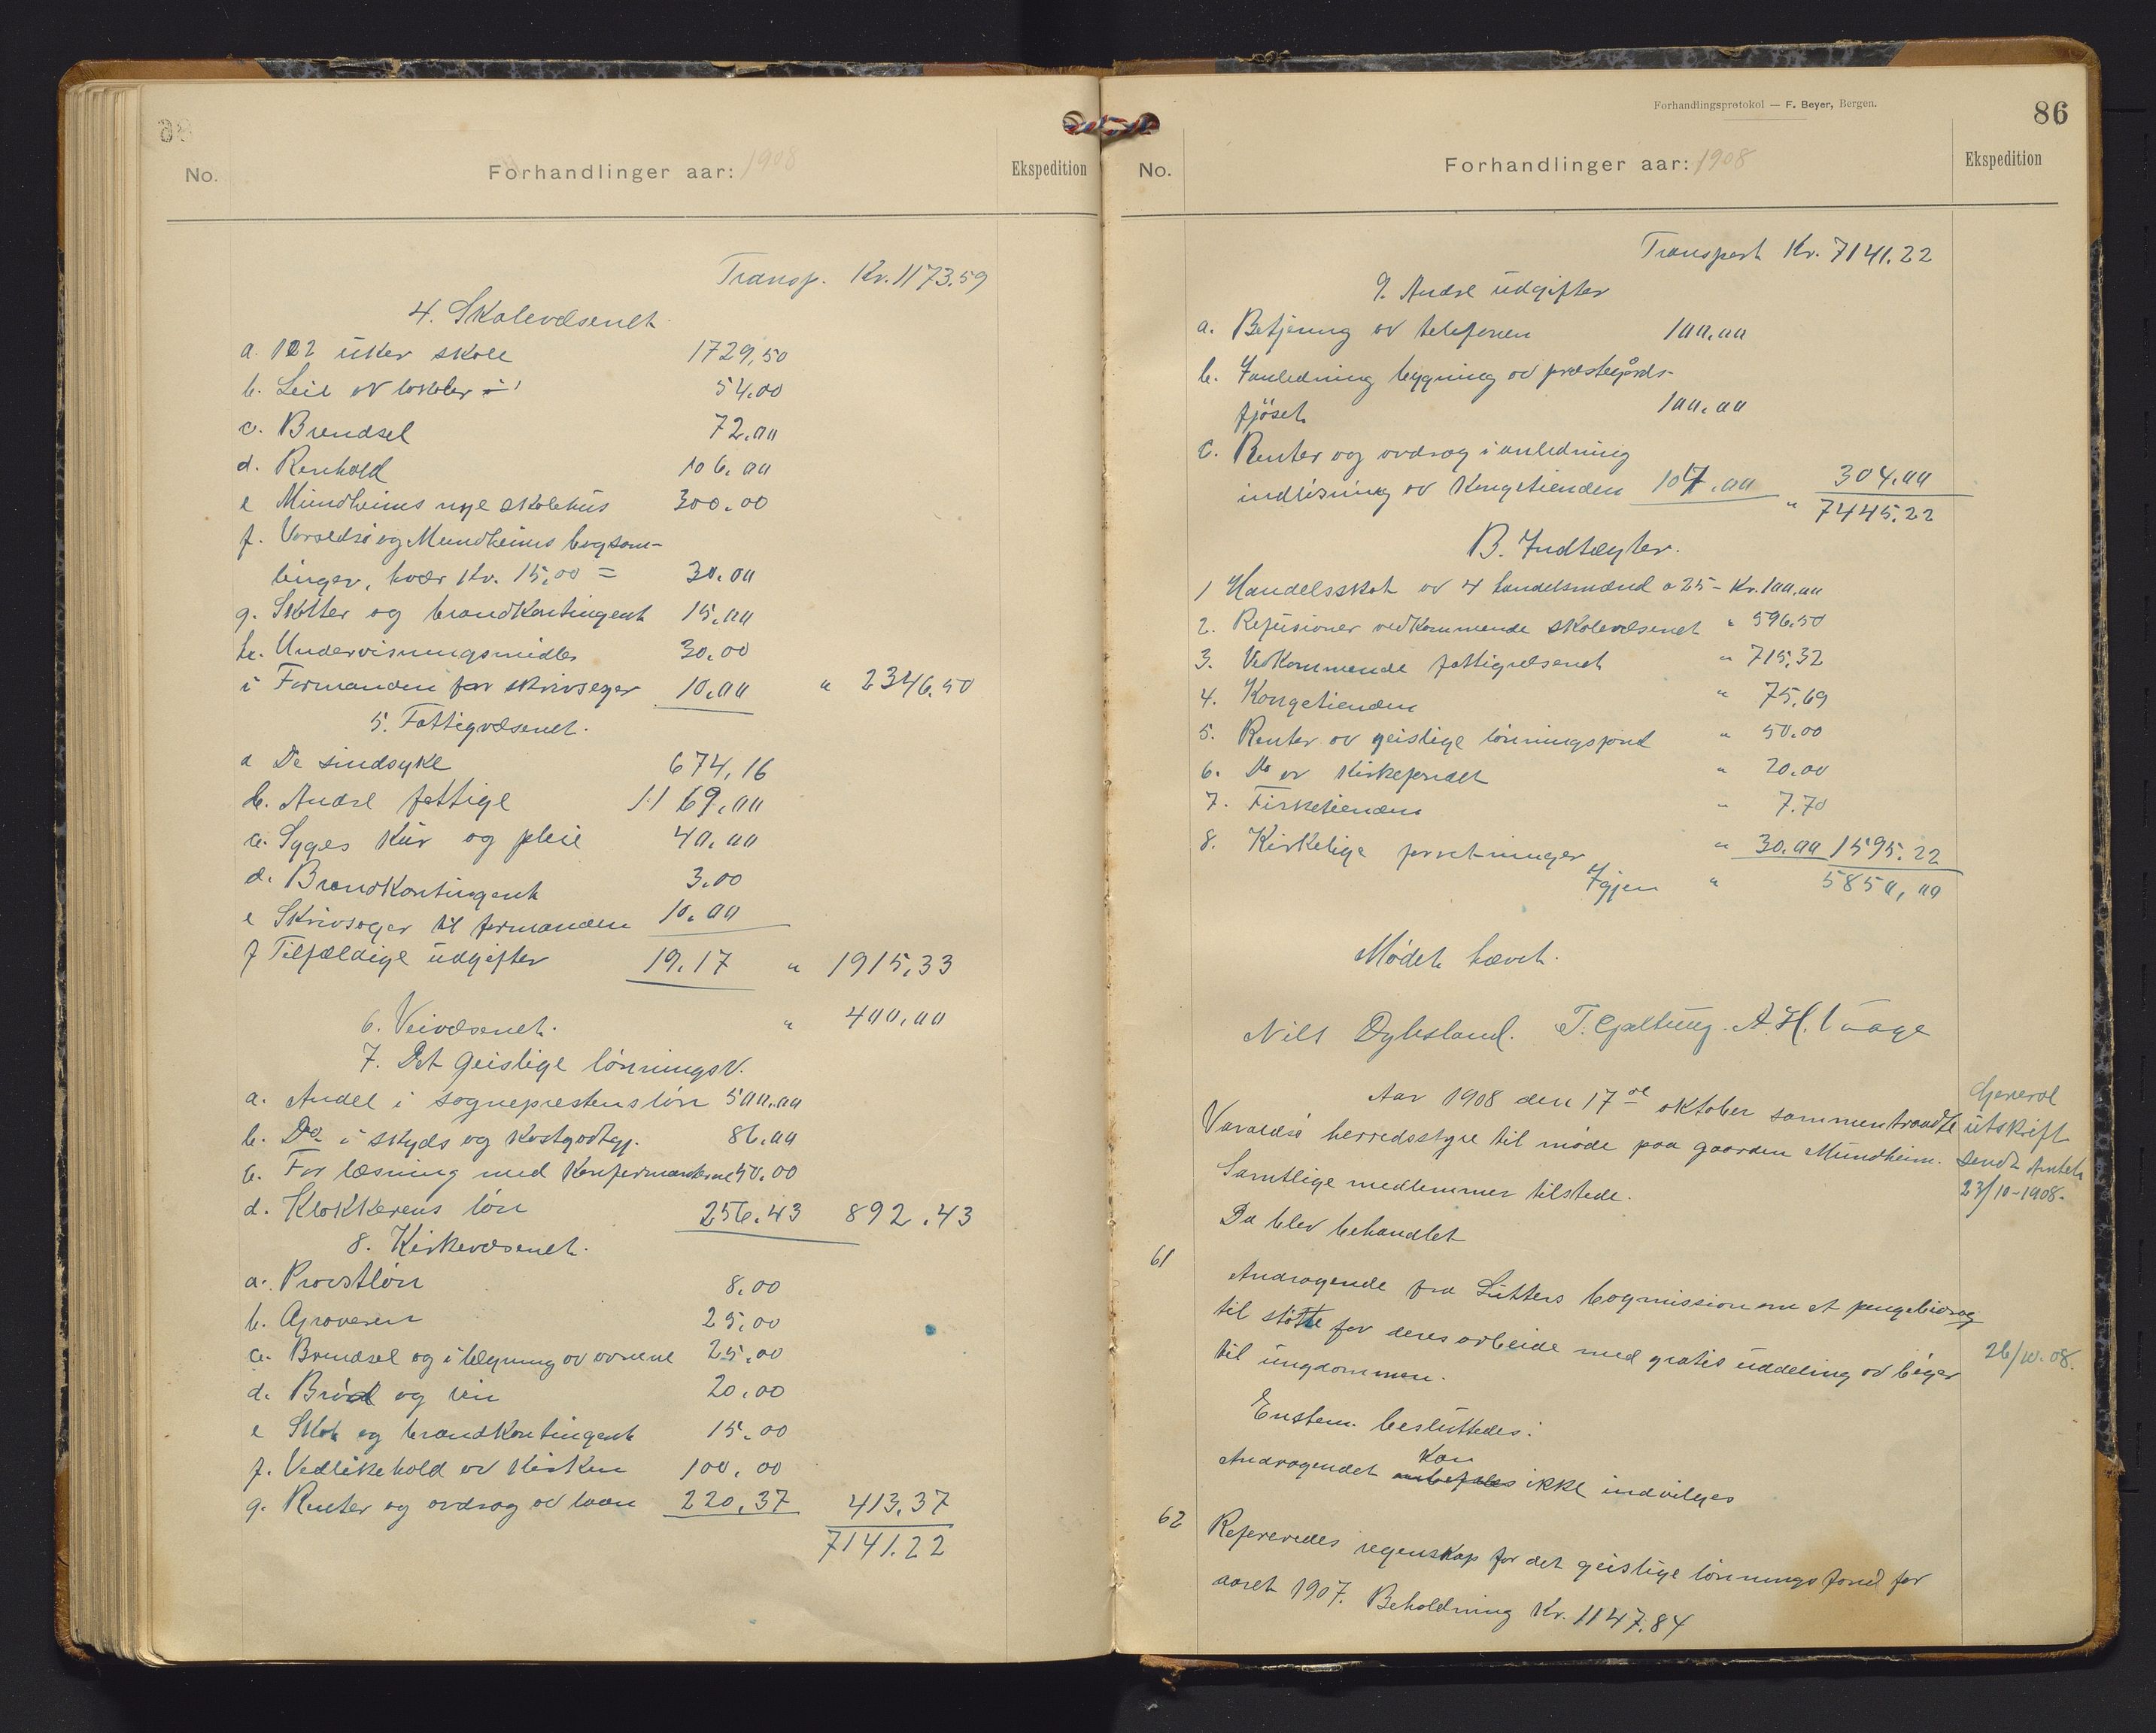 No.
Forhandlinger aar: 1908
Ekspedition
Transp. Kr. 1173.59
4. Skolevæsenet.
a. 122 uker skole 1729,50
b. Leie av lokaler 54.00
c. Brendsel 72.00
d. Renhold 106.00
e Mundheims nye skolehus 300.00
f. Varaldsø og Mundheims bogsam-
linger, hver Kr. 15,00 = 30.00
g. Skatter og brandkontingent 15.00
h. Undervisningsmidler 30.00
i Formanden for skrivseger 10.00 " 2346.50
5. Fattigvæsenet.
a De sindsyke 674,16
b. Andre fattige 1169.00
c. Syges kur og pleie 40.00
d. Brandkontingent 3.00
e Skrivseger til formanden 10.00
f Tilfældige udgifter 19.17 " 1915,33
6. Veivæsenet. " 400,00
7. Det geislige lønningsv.
a. Andel i sogneprestens løn 500.00
b. Do i skyds og kostgodtgj. 86.00
c. For læsning med konfirmanderne 50.00
d. Klokkerens løn 256.43 892.43
8. Kirkevæsenet.
a. Provstløn 8.00
b. Graveren 25,00
c. Brendsel og ilægning av ovnene 25.00
d. Brød og vin 20.00
e Skat og brandkontingent 15.00
f. Vedlikehold av kirken 100.00
g. Renter og avdrag av laan 220,37 413.37
7141.22
Forhandlingsprotokol — F. Beyer, Bergen.
86
No.
Forhandlinger aar: 1908
Ekspedition
Transport Kr. 7141.22
9. Andre udgifter
a. Betjening av telefonen 100.00
b. I anledning bygning av præstegårds-
fjøset 100.00
c. Renter og avdrag i anledning
indløsning av Kongetienden 104.00 304.00
" 7445.22
B. Indtægter.
1 Handelsskat av 4 handelsmænd a 25 - Kr. 100,00
2. Refusioner vedkommende skolevæsenet " 596.50
3. Vedkommende fattigvæsenet " 715,32
4. Kongetienden " 75,69
5. Renter av geislige lønningsfond " 50.00
6. Do av kirkefondet " 20.00
7. Fisketienden " 7.70
8. Kirkelige forretninger " 30.00 1595.22
Igjen " 5850,00
Mødet hævet.
Nils Dyblsland. T. Gjaltung. A. H. Vaage
Aar 1908 den 17de oktober sammentraadte
Varaldsø herredsstyre til møde paa gaarden Mundheim.
Samtlige medlemmer tilstede.
Da blev behandlet
General
utskrift
sendt Amtet
23/10-1908.
61
Andragende fra Luthers bogmission om et pengebidrag
til støtte for deres arbeide med gratis uddeling av bøger
til ungdommen.
26/10.08.
Enstem. besluttedes:
kan
Andragendet anbefales ikke indvilges
62
Refereredes regenskap for det geislige lønningsfond for
aaret 1907. Beholdning Kr. 1147.84